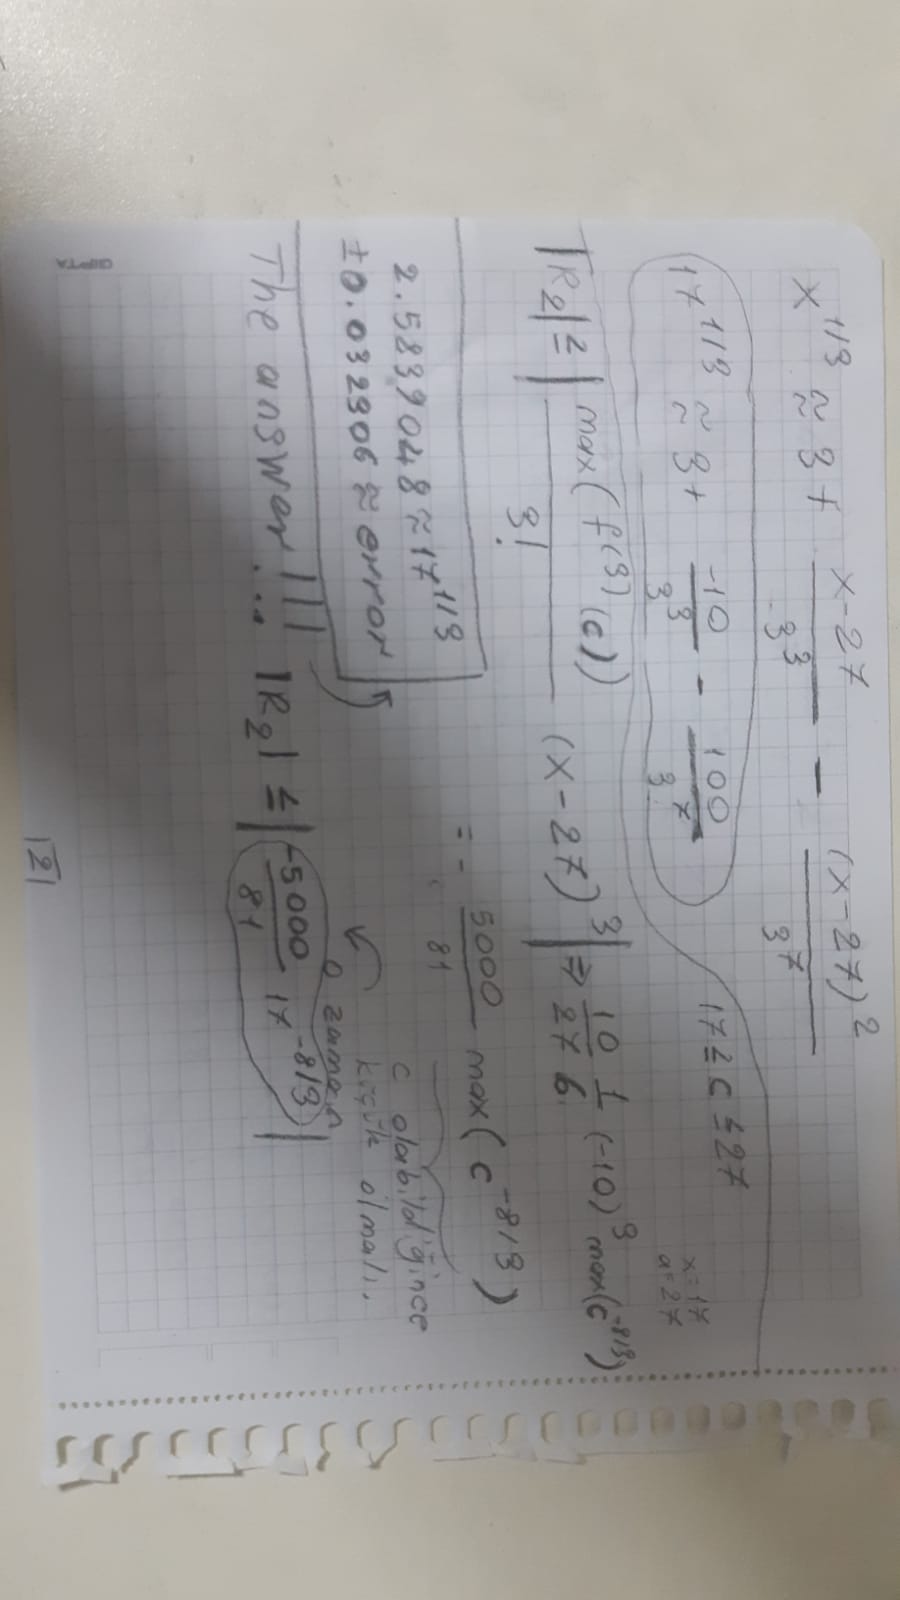 x^1/3 ≈ 3 + (x-27)/3^3 - (x-27)^2/3^7
17^1/3 ≈ 3 + -10/3^3 - 100/3^7
17 ≤ c ≤ 27
x=17
a=27
|R_2| ≤ |max(f^(3)(c))/3! (x-27)^3| ⇒ 10/27 1/6 (-10)^3 max(c^-8/3)
= - 5000/81 max(c^-8/3)
c olabildiğince
küçük olmalı.
o zaman
2.5839048 ≈ 17^1/3
±0.032306 ≈ error
The answer!!!...
|R_2| ≤ |-5000/81 17^-8/3|
GIPTA
|2|